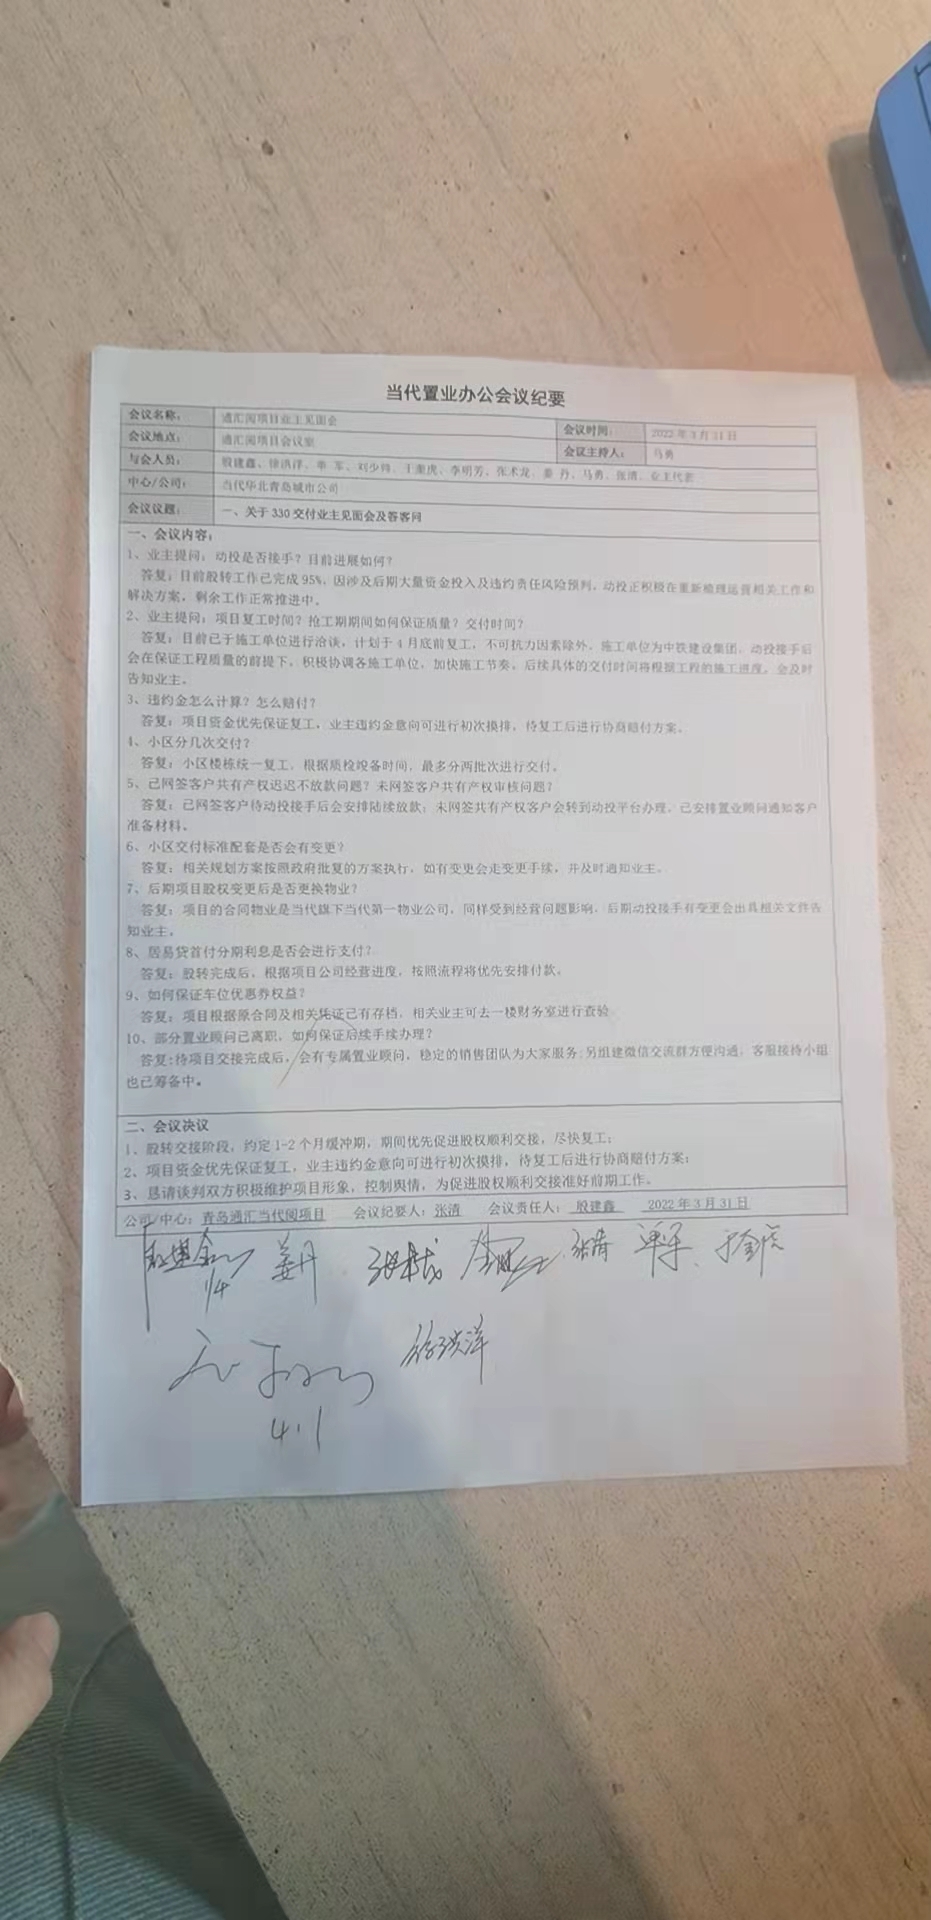 当代置业办公会议纪要
会议名称： 通汇阅项目业主见面会 会议时间： 2022年3月31日
会议地点： 通汇阅项目会议室 会议主持人： 马勇
与会人员： 殷建鑫、徐洪洋、单 军、刘少帅、于奎虎、李明芳、张术龙、姜 丹、马勇、张清、业主代表
中心/公司： 当代华北青岛城市公司
会议议题： 一、关于330交付业主见面会及答客问
一、会议内容：
1、业主提问：动投是否接手？目前进展如何？
答复：目前股转工作已完成95%，因涉及后期大量资金投入及违约责任风险预判，动投正积极在重新梳理运营相关工作和
解决方案，剩余工作正常推进中。
2、业主提问：项目复工时间？抢工期期间如何保证质量？交付时间？
答复：目前已于施工单位进行洽谈，计划于4月底前复工，不可抗力因素除外，施工单位为中铁建设集团，动投接手后
会在保证工程质量的前提下，积极协调各施工单位，加快施工节奏。后续具体的交付时间将根据工程的施工进度，会及时
告知业主。
3、违约金怎么计算？怎么赔付？
答复：项目资金优先保证复工，业主违约金意向可进行初次摸排，待复工后进行协商赔付方案。
4、小区分几次交付？
答复：小区楼栋统一复工，根据质检竣备时间，最多分两批次进行交付。
5、已网签客户共有产权迟迟不放款问题？未网签客户共有产权审核问题？
答复：已网签客户待动投接手后会安排陆续放款；未网签共有产权客户会转到动投平台办理，已安排置业顾问通知客户
准备材料。
6、小区交付标准配套是否会有变更？
答复：相关规划方案按照政府批复的方案执行，如有变更会走变更手续，并及时通知业主。
7、后期项目股权变更后是否更换物业？
答复：项目的合同物业是当代旗下当代第一物业公司，同样受到经营问题影响，后期动投接手有变更会出具相关文件告
知业主。
8、居易贷首付分期利息是否会进行支付？
答复：股转完成后，根据项目公司经营进度，按照流程将优先安排付款。
9、如何保证车位优惠券权益？
答复：项目根据原合同及相关凭证已有存档，相关业主可去一楼财务室进行查验
10、部分置业顾问已离职，如何保证后续手续办理？
答复:待项目交接完成后，会有专属置业顾问，稳定的销售团队为大家服务；另组建微信交流群方便沟通，客服接待小组
也已筹备中。
二、会议决议
1、股转交接阶段，约定1-2个月缓冲期，期间优先促进股权顺利交接，尽快复工；
2、项目资金优先保证复工，业主违约金意向可进行初次摸排，待复工后进行协商赔付方案；
3、恳请谈判双方积极维护项目形象，控制舆情，为促进股权顺利交接准好前期工作。
公司/中心：青岛通汇当代阅项目 会议纪要人：张清 会议责任人：殷建鑫 2022年3月31日
殷建鑫 姜丹 张术龙 张清 单军 于奎虎
1/4
徐洪洋
4.1